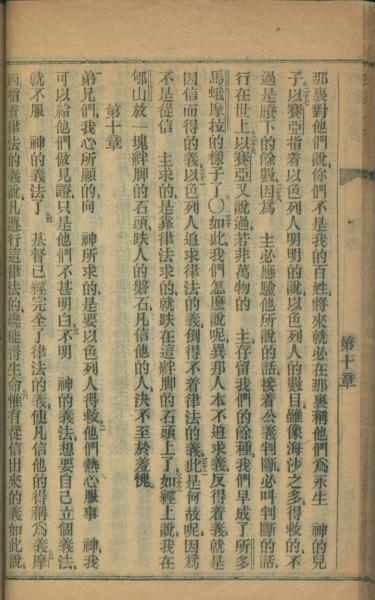 那裏對他們說你們不是我的百姓將來就必在那裏稱他們爲永生　神的兒
子以賽亞指着以色列人明明的說以色列人的數目雖像海沙之多得救的不
過是賸下的餘數因爲　主必應驗他所說的話接着公義判斷必呌判斷的話
行在世上以賽亞又說過若非萬物的　主存留我們的餘種我們早成了所多
馬蛾摩拉的樣子了○如此我們怎麼說呢異那人本不追求義反得着義就是
因信而得的義以色列人追求律法的義倒得不着律法的義此是何故呢因爲
不是從信　主求的是靠律法求的就跌在這絆脚的石頭上了如經上說我在
郇山放一塊絆脚的石頭跌人的磐石凡信他的人決不至於羞愧
第十章
弟兄們我心所願的向　神所求的是要以色列人得救他們熱心服事　神我
可以給他們做見證只是他們不甚明白不明　神的義法想要自己立個義法
就不服　神的義法了　基督已經完全了律法的義使凡信他的得稱爲義摩
西指着律法的義說凡遵行這律法的纔能得生命惟有從信出來的義如此說
第十章